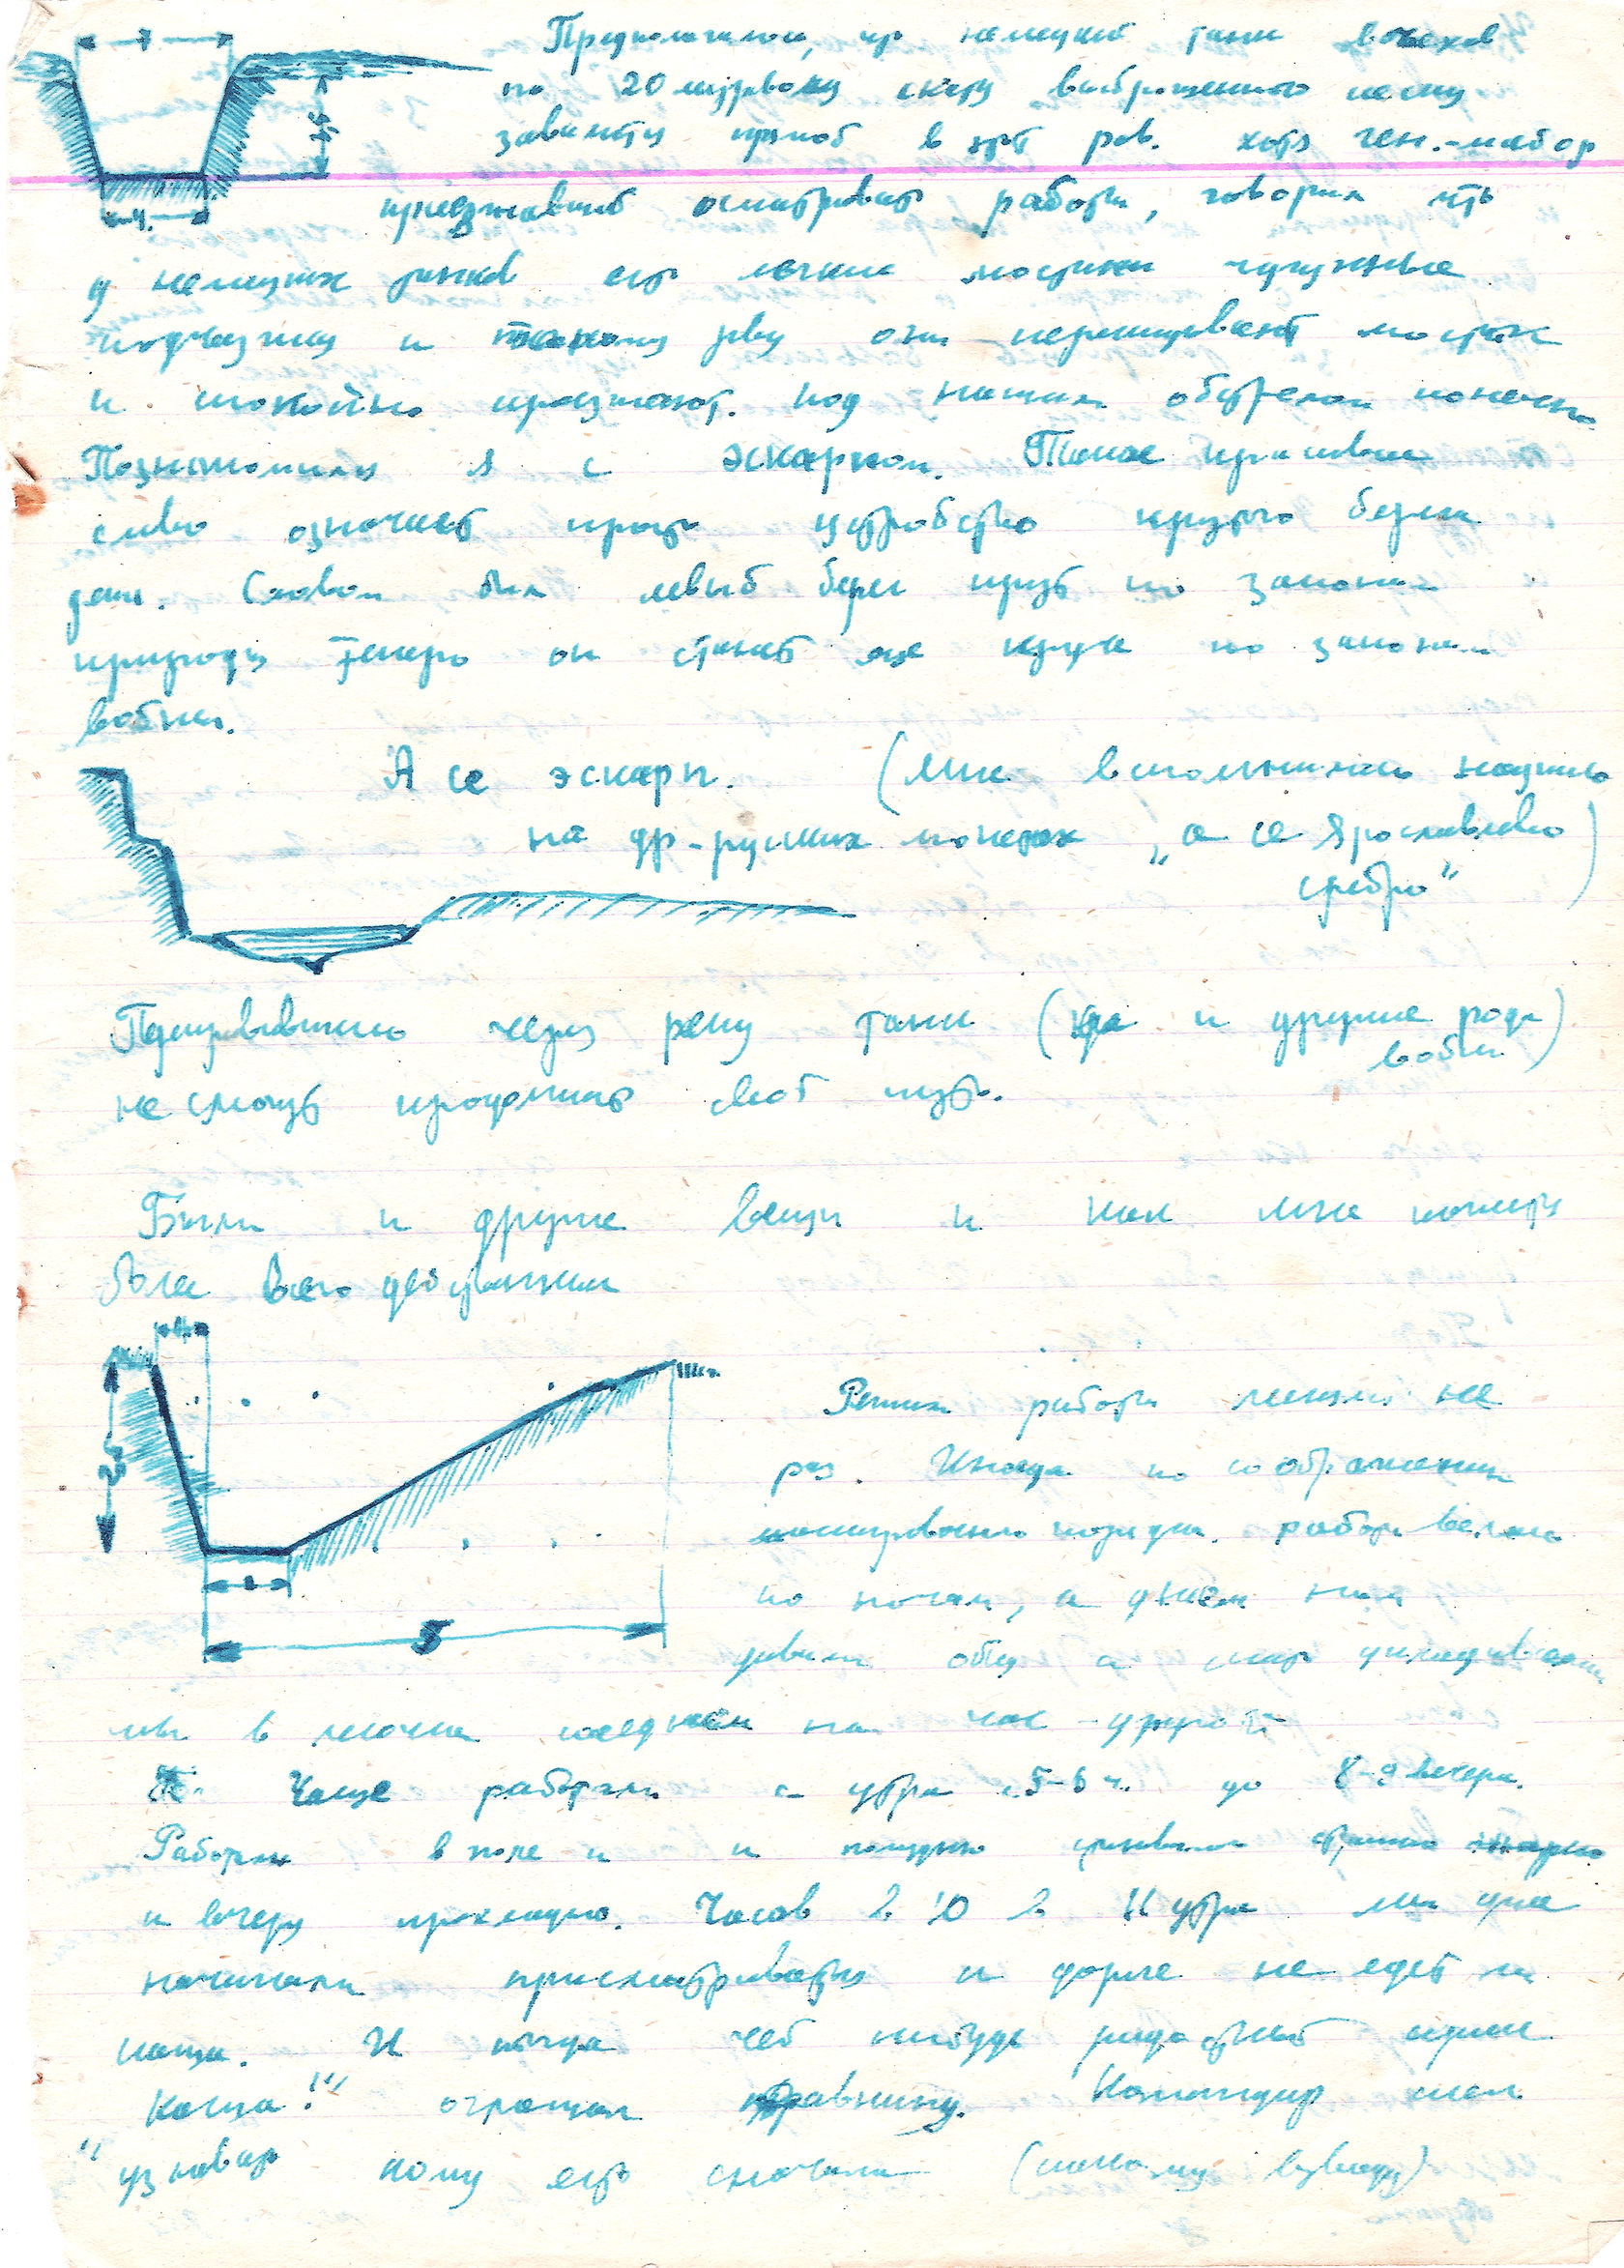 7
Предполагалось, что немецкий танк въехав
по 20 метровому скату выброшенного песку
завинтит прямо в этот ров. хотя ген.-майор
3,5
приезжавший осматривать работы, говорил что
4
у немецких танков есть легкие мостики чугунные
подъезжая к такому рву они перекидывают мостик
и спокойно проезжают. под нашим обстрелом конечно
Познакомился я с эскарпом. Такое красивое
слово означает просто устройство крутого берега
реки. Словом был левый берег крут по законам
природы теперь он станет еще круче по законам
войны.
А се эскарп. (Мне вспомнилась надпись
на др-русских монетах „а се Ярославлево
сребро")
Переправившись через реку танки (да и другие рода
войск)
не смогут продолжить свой путь.
Были и другие вещи и как мне кажется
более всего действенны
Режим работы меняли не
раз. Иногда по соображениям
маскировочного порядка. работы велись
по ночам, а днем нам
давали обед а спать укладывались
мы в лесочке соседнем на час-другой
Чаще работали с утра с 5-6 ч. до 8-9 вечера.
5
Работали в поле и к полудню становилось страшно жарко
к вечеру прохладно. Часов в 10 в 11 утра мы уже
начинали присматриваться к дороге не едет ли
каша. И когда чей нибудь радостный крик
"Каша!" оглашал равнину. Командир шел
узнавать кому есть сначала (какому взводу)